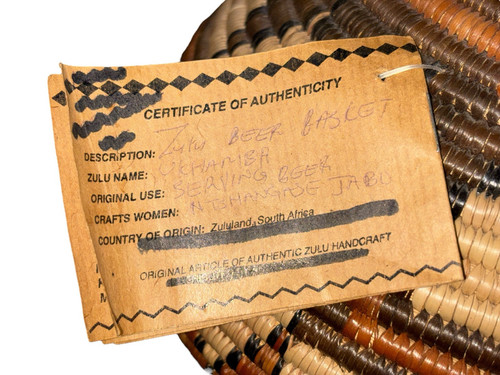 CERTIFICATE OF AUTHENTICITY
DESCRIPTION: Zulu BEER BASKET
ZULU NAME:
ORIGINAL USE: SERVING BEER
CRAFTS WOMEN: JABU
COUNTRY OF ORIGIN: Zululand, South Africa
ORIGINAL ARTICLE OF AUTHENTIC ZULU HANDCRAFT